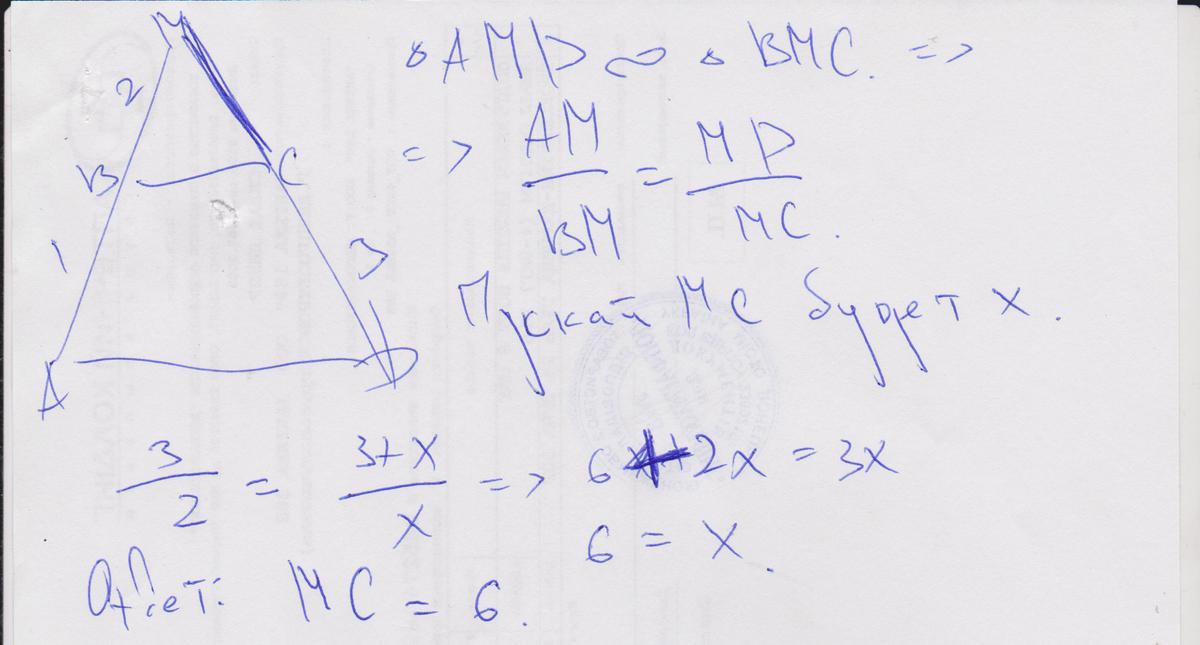 M
2
B
C
1
3
A
D
△AMD ∾ △BMC. =>
=> AM/BM = MD/MC.
Пускай MC будет x.
3/2 = 3+x/x => 6+2x = 3x
6 = x.
Ответ: MC = 6.